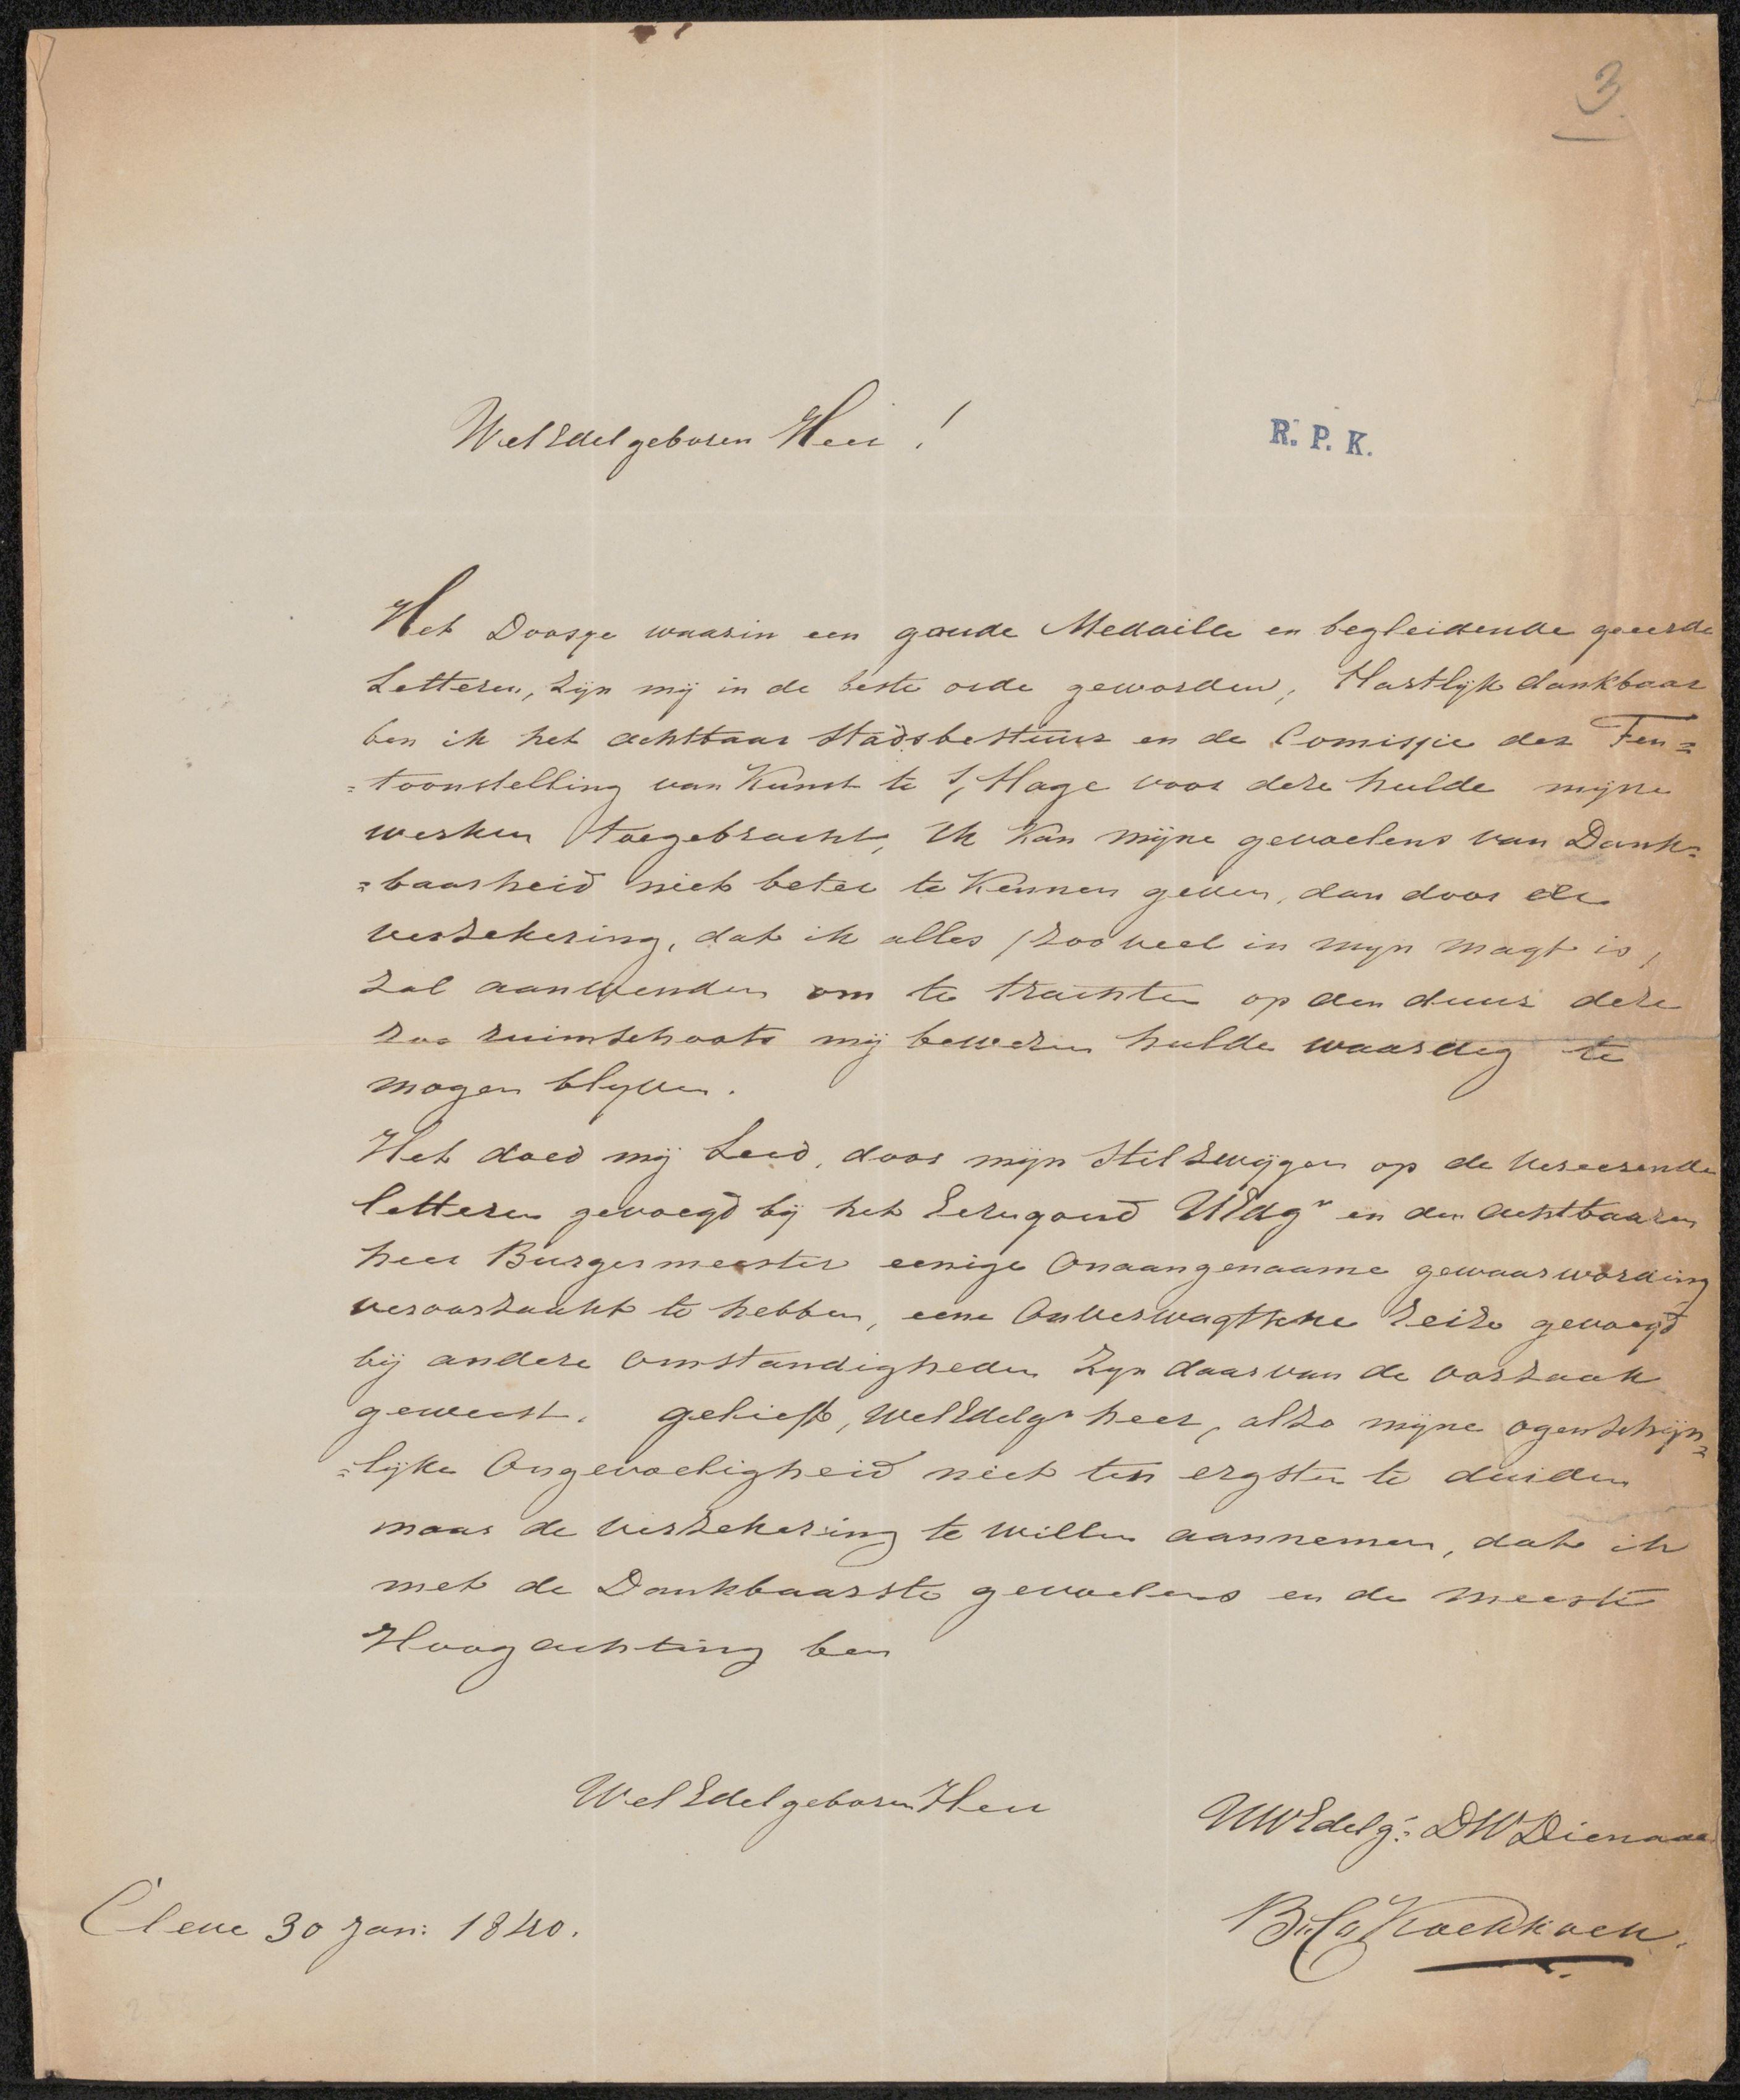 3
WelEdelgeboren Heer !
R. P. K.
Het Doosje waarin een goude Medaille en begleidende geeerde
Letteren, zijn mij in de beste orde geworden, Hartlijk dankbaar
ben ik het achtbaar Stadsbestuur en de Comissie der Ten=
=toonstelling van Kunst te S,Hage voor deze hulde mijne
werken toegebracht, Ik kan mijne gevoelens van Dank=
=baarheid niet beter te kennen geven, dan door de
verzekering, dat ik alles /zoo veel in mijn magt is,
zal aanwenden om te trachten op den duur deze
zoo ruimschoots mij bewezen hulde waardig te
mogen blyven.
Het doed mij Leed, door mijn stilzwijgen op de vereerende
letteren gevoegd bij het Eergoud UEdgn en den achtbaaren
heer Burgermeester eenige Onaangenaame gewaarwording
veroorzaakt te hebben, eene Onverwagte reize gevoegd
bij andere omstandigheden zyn daarvan de oorzaak
geweest. gelieft, WelEdelgr heer, alzo mijne ogenschijn=
=lijke Ongevoeligheid niet ten ergsten te duiden
maar de verzekering te willen aannemen, dat ik
met de Dankbaarste gevoelens en de meeste
Hoogachting ben
WelEdelgeboren Heer
UWEdelgr: DW Dienaar
B.C. Koekkoek.
Cleve 30 Jan: 1840.